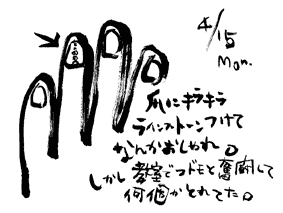 4/15
Mon.
爪にキラキラ
ラインストーンつけて
なんかおしゃれ。
しかし教室でコドモと奮闘して
何個かとれてた。